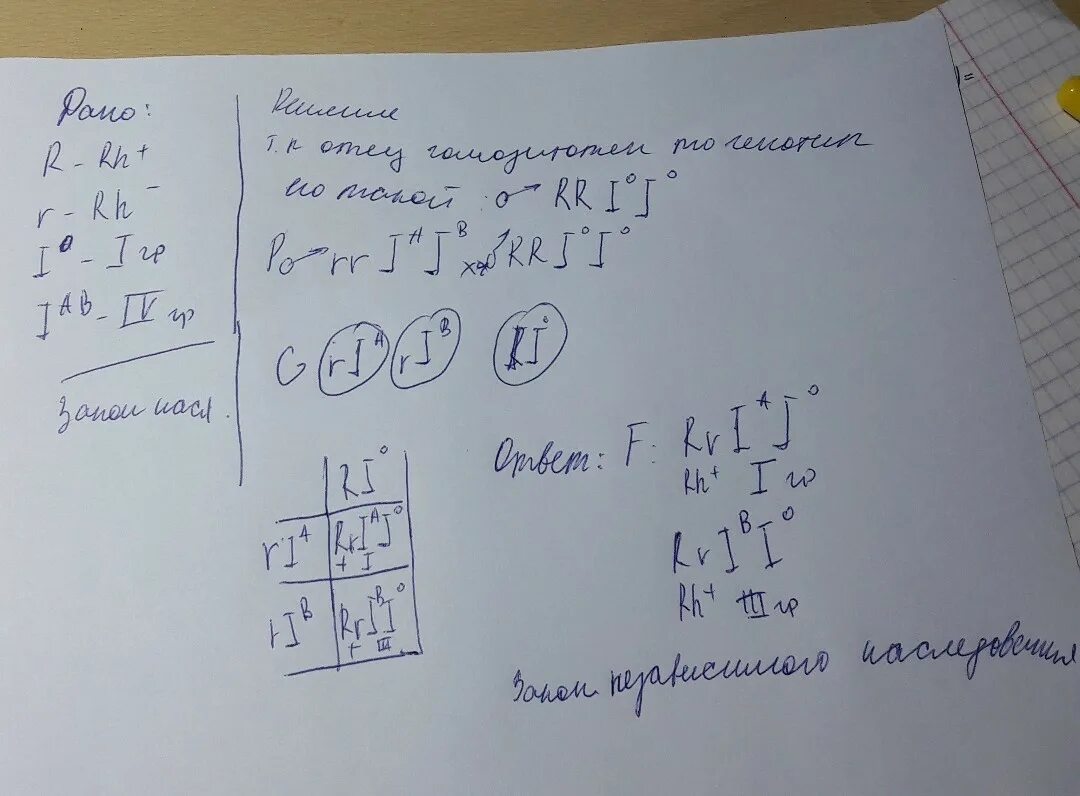 Дано:
R - Rh⁺
r - Rh⁻
I⁰ - I гр
Iᴬᴮ - IV гр
Закон насл.
Решение
т.к отец гомозиготен то генотип
его такой : ♂ RR I⁰I⁰
P ♂ rr IᴬIᴮ x ♂ RR I⁰I⁰
G rIᴬ rIᴮ RI⁰
RI⁰
rIᴬ RrIᴬI⁰
+ I
rIᴮ RrIᴮI⁰
+ III
Ответ: F: Rr IᴬI⁰
Rh⁺ I гр
Rr IᴮI⁰
Rh⁺ III гр
Закон независимого наследования
)=